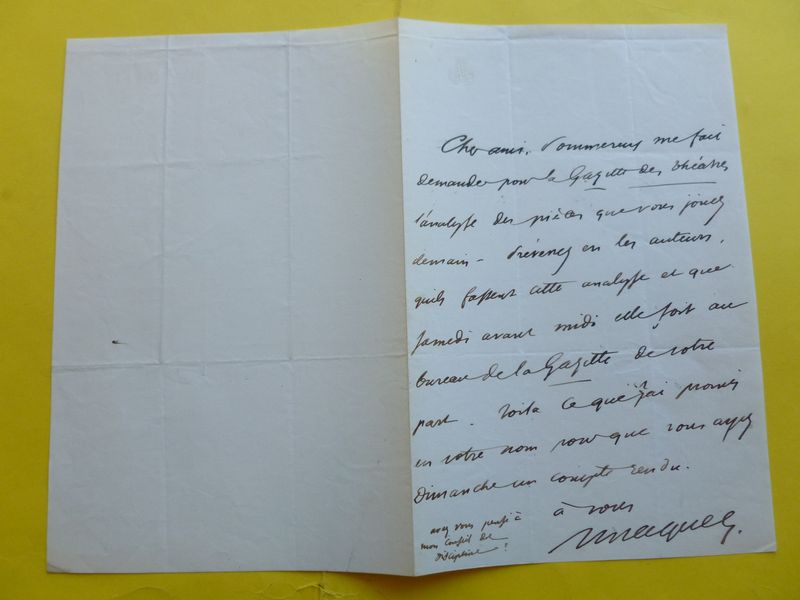 Cher ami. Pommereux me fait
demander pour la Gazette des théâtres
l'analyse des pièces que vous jouez
demain - Prévenez en les auteurs,
quils fassent cette analyse et que
samedi avant midi elle soit au
bureau de la Gazette de votre
part. Voilà ce que j'ai promis
en votre nom pour que vous ayez
Dimanche un compte rendu.
à vous
Maquet.
avez vous pensé à
mon conseil de
discipline?